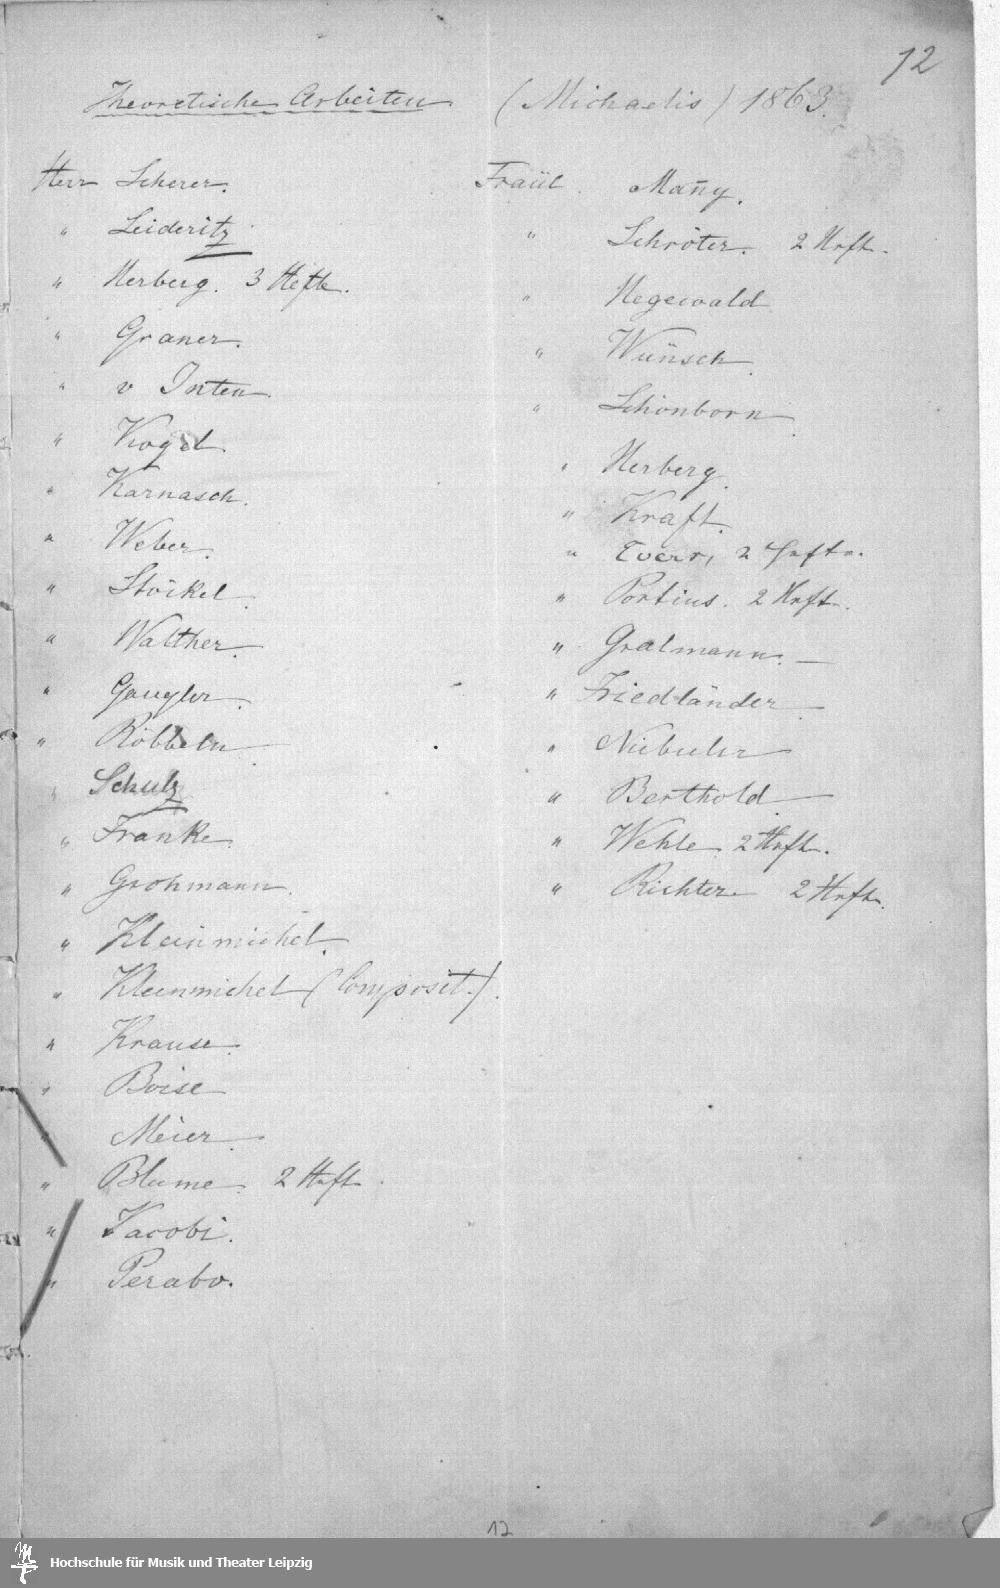 12
Theoretische Arbeiten (Michaelis) 1863.
Herr Scherer.
" Leideritz
" Herberg. 3 Hefte.
" Graner.
" v Inten
" Kogel
" Karnasch.
" Weber.
" Stöckel.
" Walther.
" Gaugler.
" Röbbeln
" Schulz
" Franke.
" Grohmann.
" Kleinmichel.
" Kleinmichel (Composit.).
" Krause.
" Boise
" Meier.
" Blume. 2 Hefte.
" Jacobi.
" Perabo.
Fräul. Mañy.
" Schröter. 2 Hefte.
" Hegewald
" Wünsch.
" Schönborn.
" Herberg.
" Kraft.
" Evers, 2 Hefte.
" Portius. 2 Hefte.
" Gralmann. —
" Friedländer.
" Berthold
" Wehle. 2 Hefte.
" Richter 2 Hefte.
12
Hochschule für Musik und Theater Leipzig